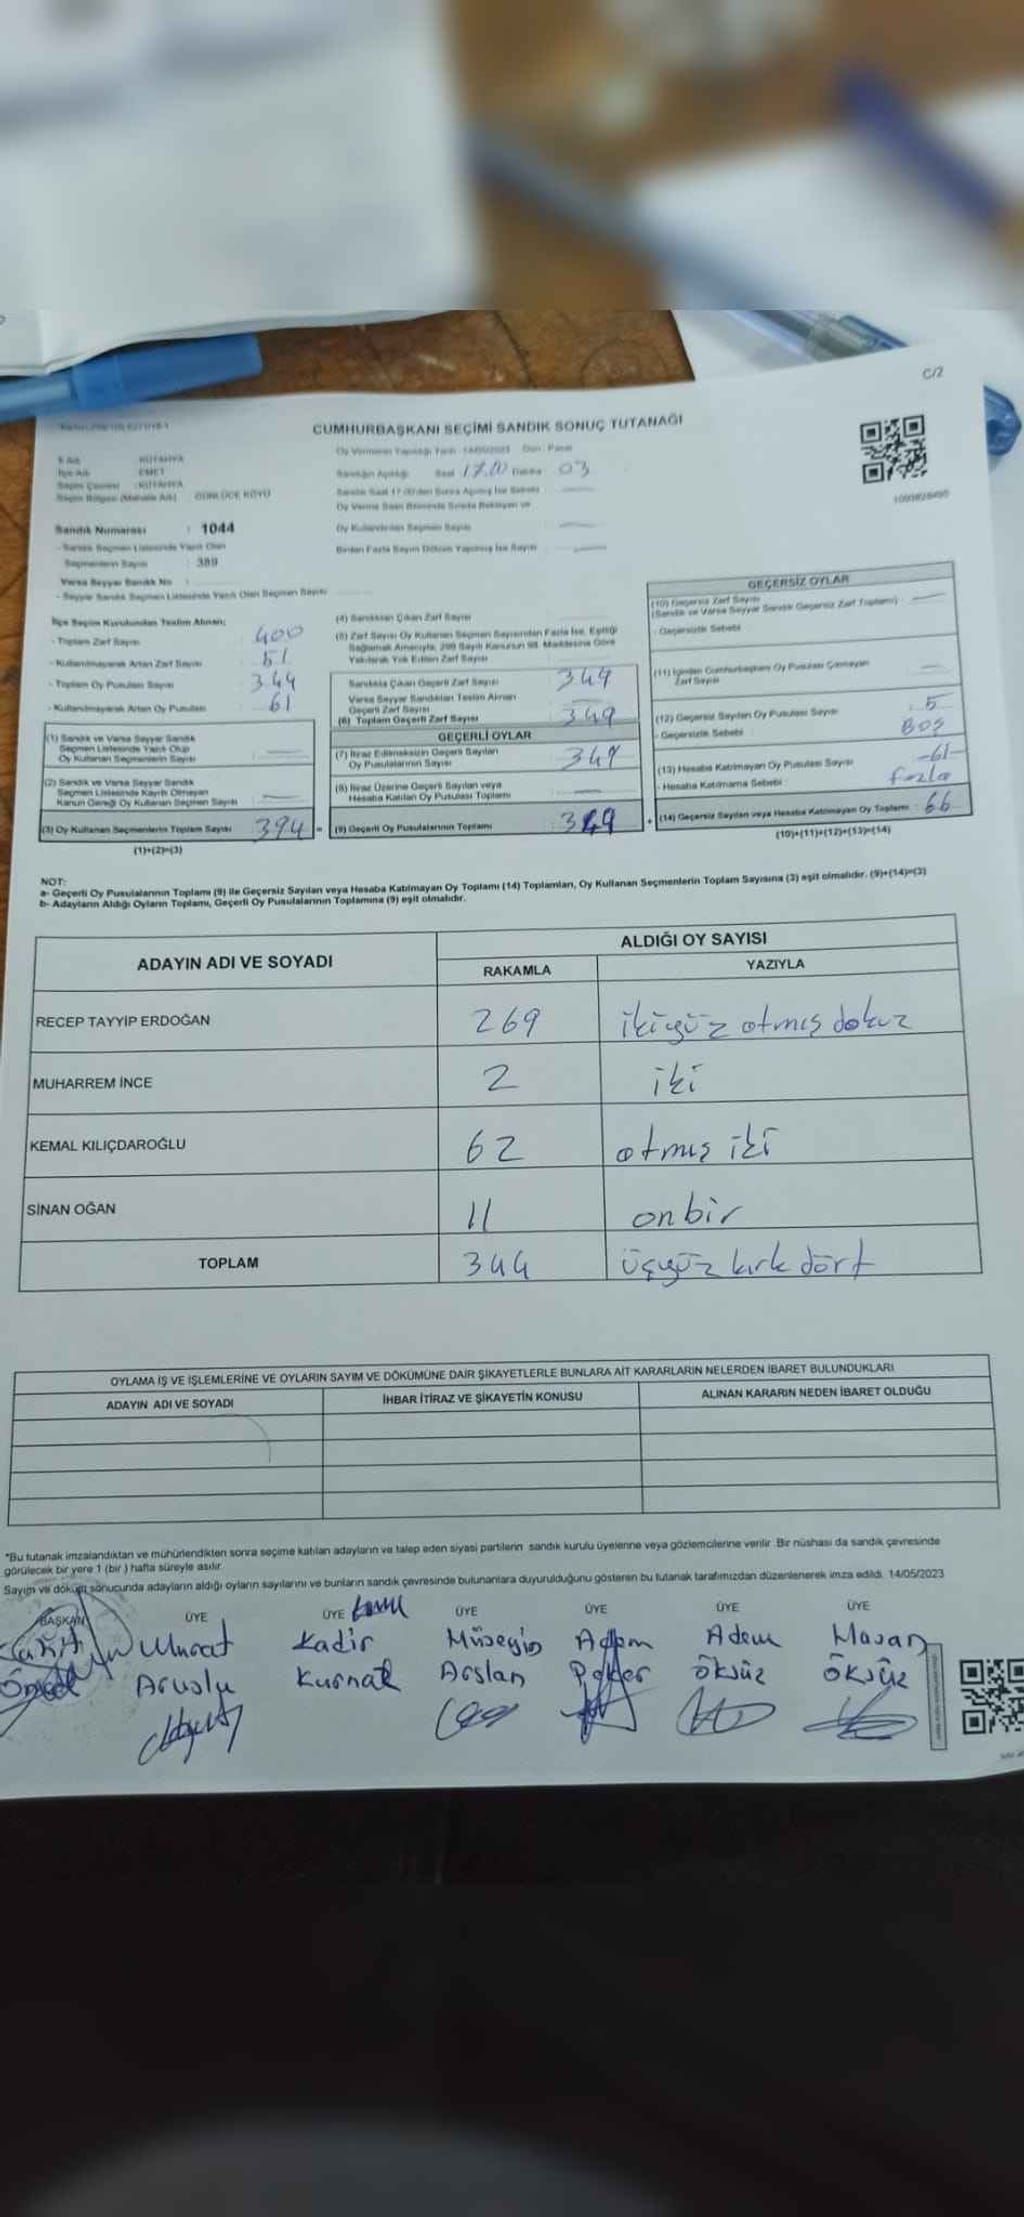 C/2
CUMHURBAŞKANI SEÇİMİ SANDIK SONUÇ TUTANAĞI
Oy Vermenin Yapıldığı Tarih : 14/05/2023 Gün : Pazar
İl Adı KÜTAHYA
İlçe Adı EMET
Seçim Çevresi : KÜTAHYA
Seçim Bölgesi (Mahalle Adı) : GÜNLÜCE KÖYÜ
Sandığın Açıldığı Saat 17.00 Dakika 03
Sandık Numarası : 1044
- Sandık Seçmen Listesinde Yazılı Olan
Seçmenlerin Sayısı : 389
Oy Kullandırılan Seçmen Sayısı
Birden Fazla Sayım Döküm Yapılmış İse Sayısı
Varsa Seyyar Sandık No :
- Seyyar Sandık Seçmen Listesinde Yazılı Olan Seçmen Sayısı
İlçe Seçim Kurulundan Teslim Alınan;
- Toplam Zarf Sayısı 400
- Kullanılmayarak Artan Zarf Sayısı 51
- Toplam Oy Pusulası Sayısı 344
- Kullanılmayarak Artan Oy Pusulası 61
(1) Sandık ve Varsa Seyyar Sandık
Seçmen Listesinde Yazılı Olup
Oy Kullanan Seçmenlerin Sayısı
(2) Sandık ve Varsa Seyyar Sandık
Seçmen Listesinde Kayıtlı Olmayan
Kanun Gereği Oy Kullanan Seçmen Sayısı
(3) Oy Kullanan Seçmenlerin Toplam Sayısı 394
(1)+(2)=(3)
(4) Sandıktan Çıkan Zarf Sayısı
(5) Zarf Sayısı Oy Kullanan Seçmen Sayısından Fazla İse, Eşitliği
Sağlamak Amacıyla, 298 Sayılı Kanunun 98. Maddesine Göre
Yakılarak Yok Edilen Zarf Sayısı
Sandıkta Çıkan Geçerli Zarf Sayısı 349
Varsa Seyyar Sandıktan Teslim Alınan
Geçerli Zarf Sayısı
(6) Toplam Geçerli Zarf Sayısı 349
GEÇERLİ OYLAR
(7) İtiraz Edilmeksizin Geçerli Sayılan
Oy Pusulalarının Sayısı 349
(8) İtiraz Üzerine Geçerli Sayılan veya
Hesaba Katılan Oy Pusulası Toplamı
(9) Geçerli Oy Pusulalarının Toplamı 349
GEÇERSİZ OYLAR
(10) Geçersiz Zarf Sayısı
(Sandık ve Varsa Seyyar Sandık Geçersiz Zarf Toplamı)
- Geçersizlik Sebebi
(11) İçinden Cumhurbaşkanı Oy Pusulası Çıkmayan
Zarf Sayısı
(12) Geçersiz Sayılan Oy Pusulası Sayısı : 5
- Geçersizlik Sebebi BOŞ
(13) Hesaba Katılmayan Oy Pusulası Sayısı -61-
- Hesaba Katılmama Sebebi fazla
(14) Geçersiz Sayılan veya Hesaba Katılmayan Oy Toplamı : 66
(10)+(11)+(12)+(13)=(14)
NOT:
a- Geçerli Oy Pusulalarının Toplamı (9) ile Geçersiz Sayılan veya Hesaba Katılmayan Oy Toplamı (14) Toplamları, Oy Kullanan Seçmenlerin Toplam Sayısına (3) eşit olmalıdır. (9)+(14)=(3)
b- Adayların Aldığı Oyların Toplamı, Geçerli Oy Pusulalarının Toplamına (9) eşit olmalıdır.
ADAYIN ADI VE SOYADI ALDIĞI OY SAYISI
RAKAMLA YAZIYLA
RECEP TAYYİP ERDOĞAN 269 ikiyüz atmış dokuz
MUHARREM İNCE 2 iki
KEMAL KILIÇDAROĞLU 62 atmış iki
SİNAN OĞAN 11 onbir
TOPLAM 344 üçyüz kırk dört
OYLAMA İŞ VE İŞLEMLERİNE VE OYLARIN SAYIM VE DÖKÜMÜNE DAİR ŞİKAYETLERLE BUNLARA AİT KARARLARIN NELERDEN İBARET BULUNDUKLARI
ADAYIN ADI VE SOYADI İHBAR İTİRAZ VE ŞİKAYETİN KONUSU ALINAN KARARIN NEDEN İBARET OLDUĞU
*Bu tutanak imzalandıktan ve mühürlendikten sonra seçime katılan adayların ve talep eden siyasi partilerin sandık kurulu üyelerine veya gözlemcilerine verilir. Bir nüshası da sandık çevresinde
görülecek bir yere 1 (bir) hafta süreyle asılır.
Sayım ve döküm sonucunda adayların aldığı oyların sayılarını ve bunların sandık çevresinde bulunanlara duyurulduğunu gösteren bu tutanak tarafımızdan düzenlenerek imza edildi. 14/05/2023
BAŞKAN ÜYE ÜYE ÜYE ÜYE ÜYE ÜYE
Murat Kadir Hüseyin Adem Adem Hasan
Aruslu Kurnak Arslan Peker öksüz öksüz